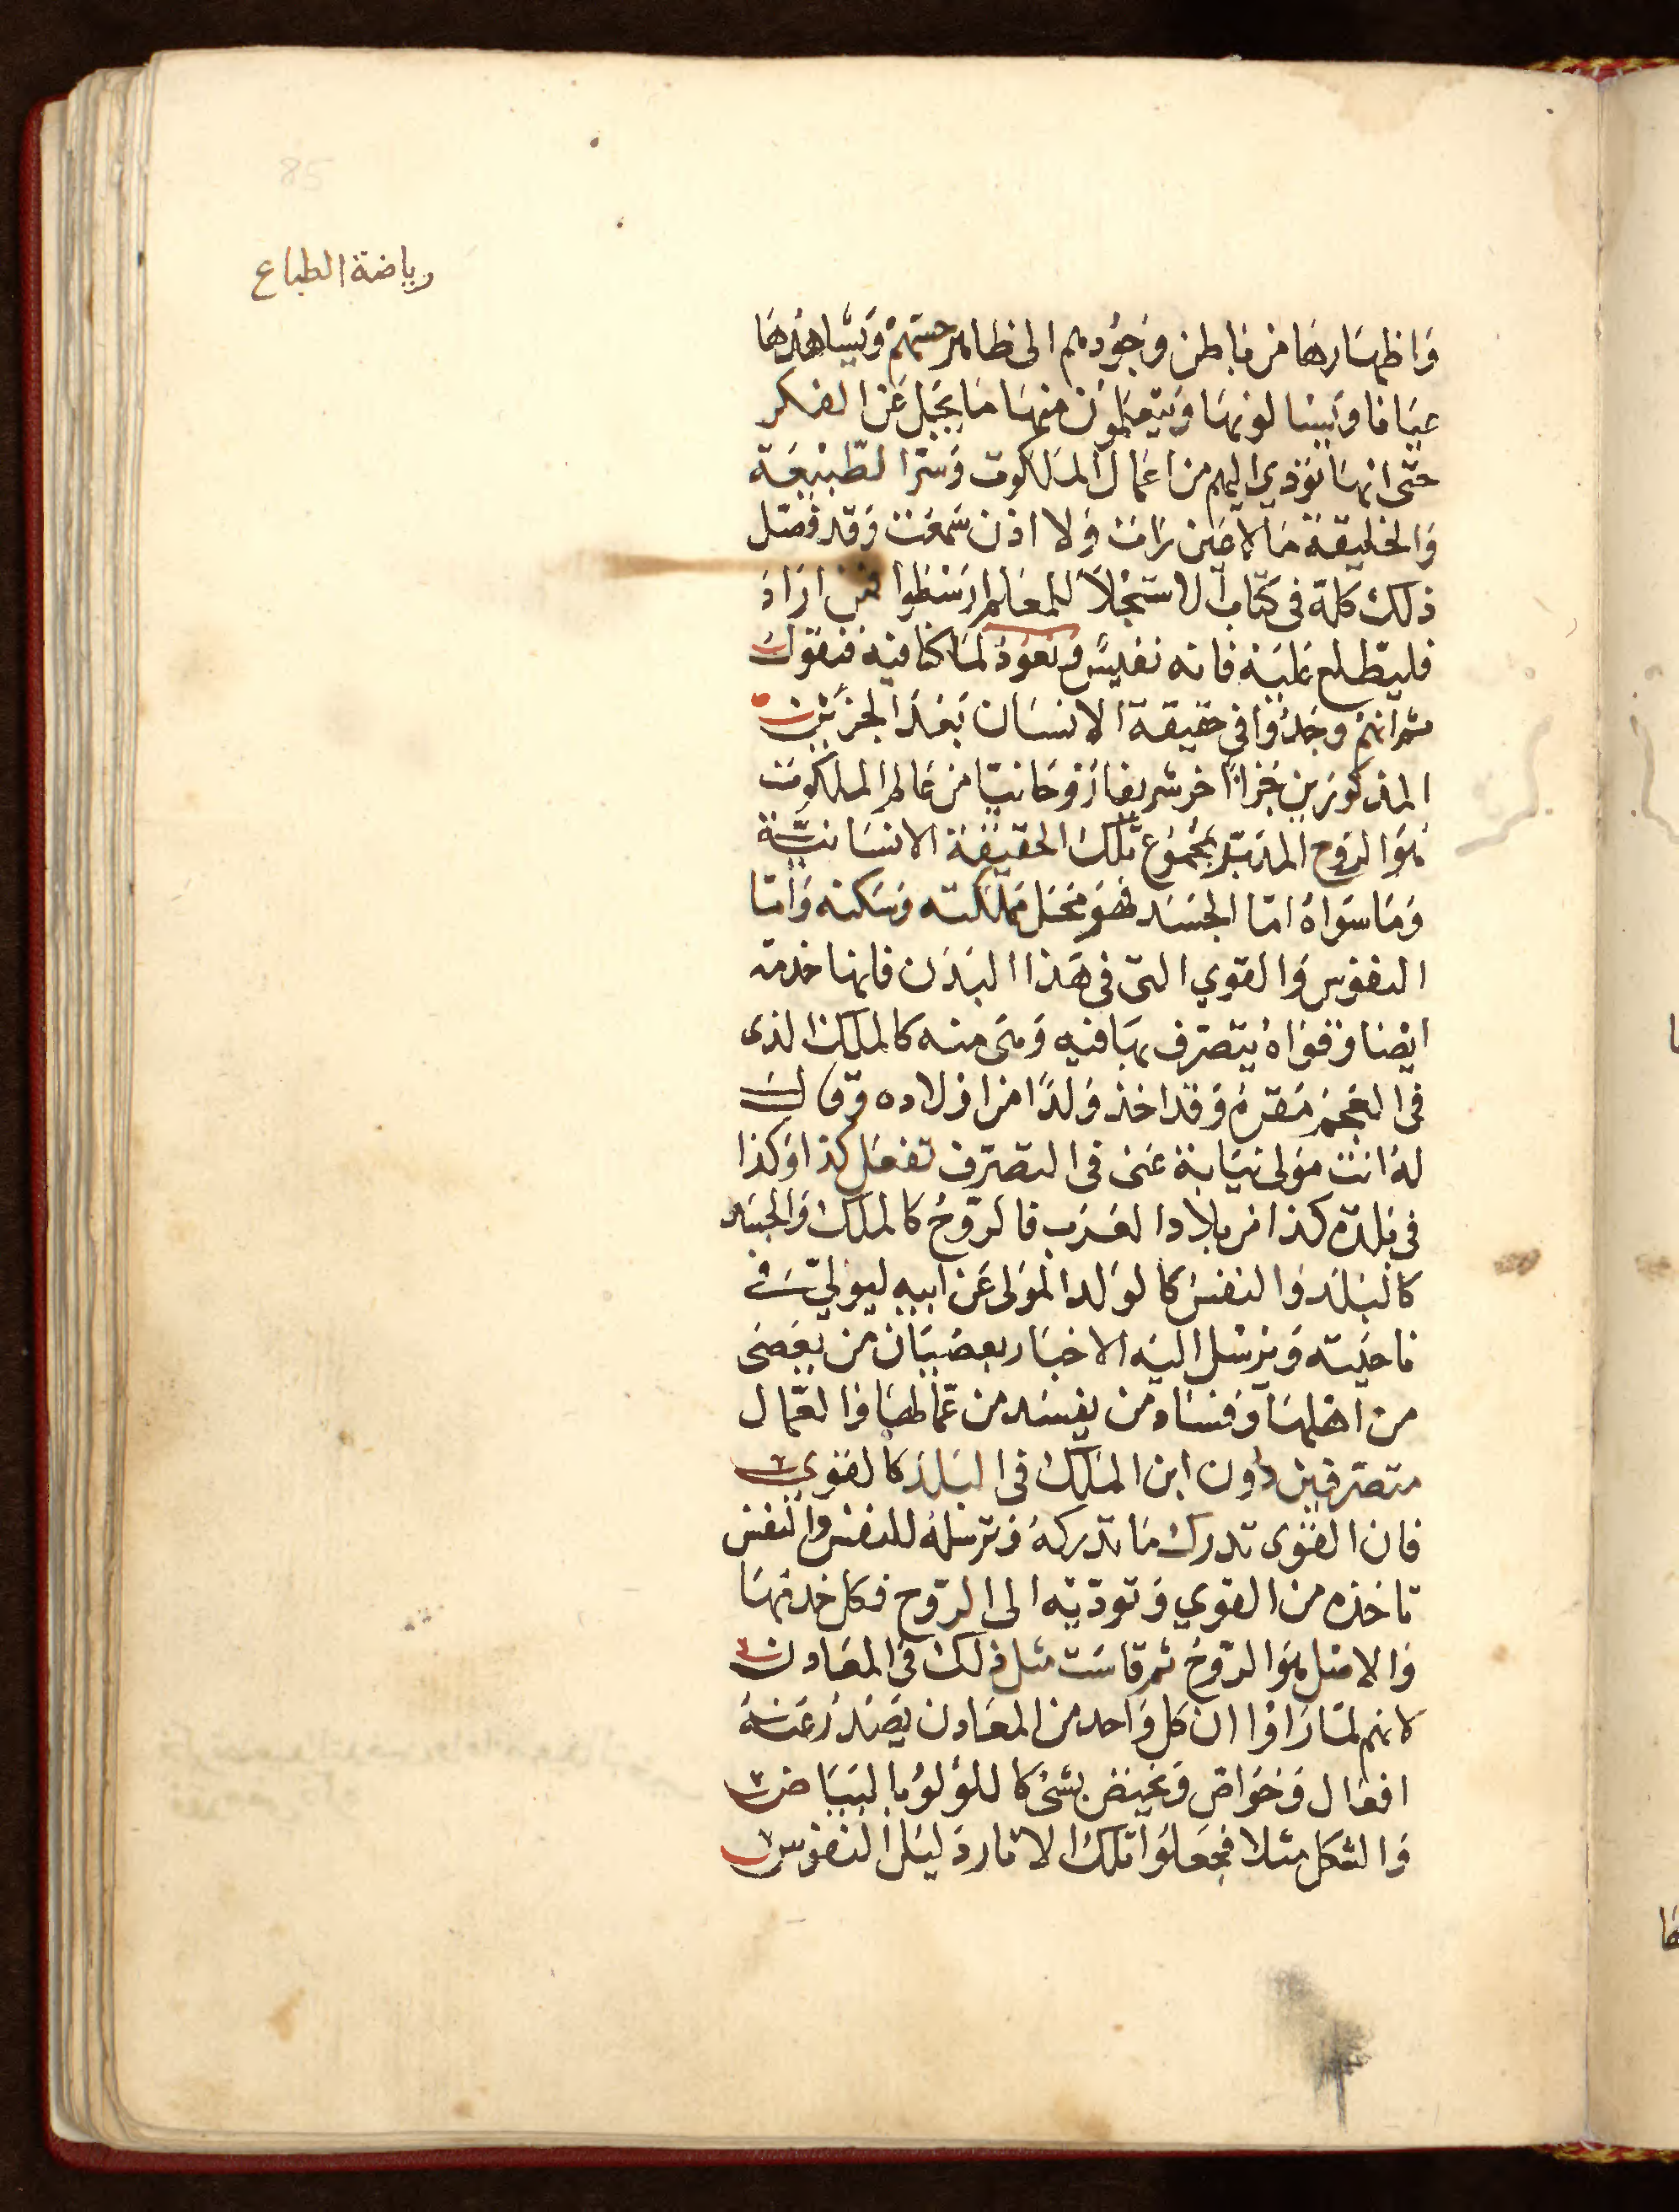 85
رياضة الطباع
وَاظهَارهَا من باطن وجُودهم الى ظاهر حسّهمْ وَيشاهدُهَا
عيَانا وَيسالونهَا وَيتعَلموُن منهَا مَا يَجَل عَن الفكر
حتى انهَا تؤدي اليهم من اعمَال الملكوت وَسرّ الطّبيعَة
وَالخليقة مَا لا عَين رَات وَلا اذن سَمعَت وَقد فصّل
ذلك كله في كتاب الاستجلاَ للمعَلم ارسطوا فمن ارَادَ
فليطّلع عَليَه فانه نفيسٌ وَنعَودُ لماَ كنا فيه فنقول
ثم انهُم وجَدُوا في حقيقة الانسَان بَعْدَ الجزئين
المذكورَين جَزاً اخر شريفا رُوحَانيّا من عَالم الملكوت
هوَ الروح المدَبّر لمجْمُوع تلك الحقيقَة الانسَانيّة
وَمَا سوَاهُ امّا الجسَد فهوَ محَل مَملكته وَسَكنه وَامّا
النفوس وَالقوي التى فى هَذا البَدَن فانها خدمه
ايْضا وَقوَاهُ يتصّرف بهَا فيه وَهى منه كالملك الذى
فى العَجم مَقرهُ وَقد اخذ وَلدًا من اوْلاده وَقال
لهُ انت مَولى نيَابة عَنى فى التصّرف تفعَل كذا وَكذا
فى بَلدة كذا من بلاد العَرَب فالرّوحُ كالملك وَالجسَد
كالبَلد وَالنفسُ كالوَلد الموَلى عَن ابيه ليوليّ فى
ناحيَته وَيرْسَل اليَه الاخبَار بعصْيَان من يَعَصَى
من اهْلهَا وَفسَاد من يفسَد من عمّالهَا وَالعمّال
متصّرفين دُون ابن الملَك فى البَلد كالقوي
فان القوَى تدرك مَا تدركهُ وَترْسلهُ للنفسْ وَالنفس
تاخذه من القوي وَتودّيه الى الرّوح فكل خدمهَا
وَالاصَل هوَ الرّوحُ ثم قاسَت مثل ذلك فى المعَادن
لانهم لمّا رَاوْا ان كل وَاحد من المعَادن يَصَدُرُ عَنهُ
افعَال وَخوَاص وَيختصّ بشىْ كاللوُلوُ بالبيَاض
وَالشكل مثلا فجعَلوُا تلك الاثار دَليَل النفوس